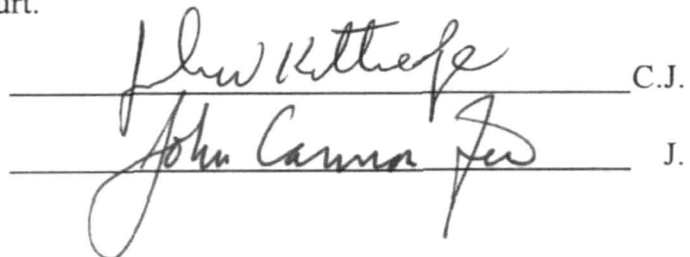 urt.
John W Kittredge C.J.
John Cannon Few J.